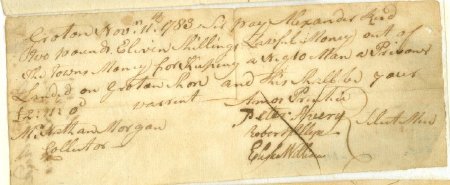 Groton Nov.r 11th 1783 Sir pay Alexander Kid
Two pounds Eleven Shillings Lawful Money out of
the Towns Money for Keeping a Negro Man a Prisoner
Landed on Groton Shore and this Shall be your
£2:11:0 warrent Amos Prentice
Mr. Nathan Morgan Peter Avery
Collector Robert Allyn Select Men
Elisha Williams